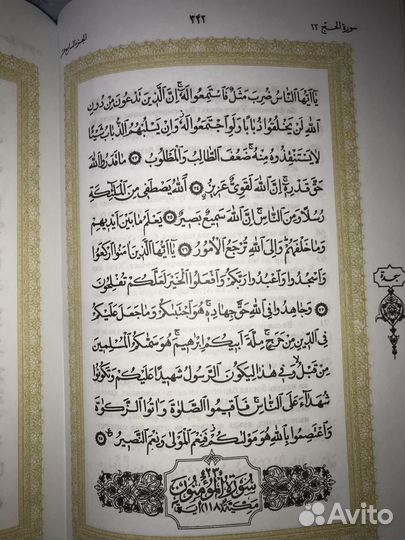 سورة الحج ٢٢
٣٤٢
الجزء السابع عشر
يَا أَيُّهَا النَّاسُ ضُرِبَ مَثَلٌ فَاسْتَمِعُوا لَهُ ۚ إِنَّ الَّذِينَ تَدْعُونَ مِنْ دُونِ
اللَّهِ لَنْ يَخْلُقُوا ذُبَابًا وَلَوِ اجْتَمَعُوا لَهُ ۖ وَإِنْ يَسْلُبْهُمُ الذُّبَابُ شَيْئًا
لَا يَسْتَنْقِذُوهُ مِنْهُ ۚ ضَعُفَ الطَّالِبُ وَالْمَطْلُوبُ ﴿٧٣﴾ مَا قَدَرُوا اللَّهَ
حَقَّ قَدْرِهِ ۗ إِنَّ اللَّهَ لَقَوِيٌّ عَزِيزٌ ﴿٧٤﴾ اللَّهُ يَصْطَفِي مِنَ الْمَلَائِكَةِ
رُسُلًا وَمِنَ النَّاسِ ۚ إِنَّ اللَّهَ سَمِيعٌ بَصِيرٌ ﴿٧٥﴾ يَعْلَمُ مَا بَيْنَ أَيْدِيهِمْ
وَمَا خَلْفَهُمْ ۗ وَإِلَى اللَّهِ تُرْجَعُ الْأُمُورُ ﴿٧٦﴾ يَا أَيُّهَا الَّذِينَ آمَنُوا ارْكَعُوا
وَاسْجُدُوا وَاعْبُدُوا رَبَّكُمْ وَافْعَلُوا الْخَيْرَ لَعَلَّكُمْ تُفْلِحُونَ
﴿٧٧﴾ وَجَاهِدُوا فِي اللَّهِ حَقَّ جِهَادِهِ ۚ هُوَ اجْتَبَاكُمْ وَمَا جَعَلَ عَلَيْكُمْ
فِي الدِّينِ مِنْ حَرَجٍ ۚ مِلَّةَ أَبِيكُمْ إِبْرَاهِيمَ ۚ هُوَ سَمَّاكُمُ الْمُسْلِمِينَ
مِنْ قَبْلُ وَفِي هَٰذَا لِيَكُونَ الرَّسُولُ شَهِيدًا عَلَيْكُمْ وَتَكُونُوا
شُهَدَاءَ عَلَى النَّاسِ ۚ فَأَقِيمُوا الصَّلَاةَ وَآتُوا الزَّكَاةَ
وَاعْتَصِمُوا بِاللَّهِ هُوَ مَوْلَاكُمْ ۖ فَنِعْمَ الْمَوْلَىٰ وَنِعْمَ النَّصِيرُ ﴿٧٨﴾
سجدة
٢٣
سُورَةُ الْمُؤْمِنُونَ
مكية ١١٨ آية
Avito